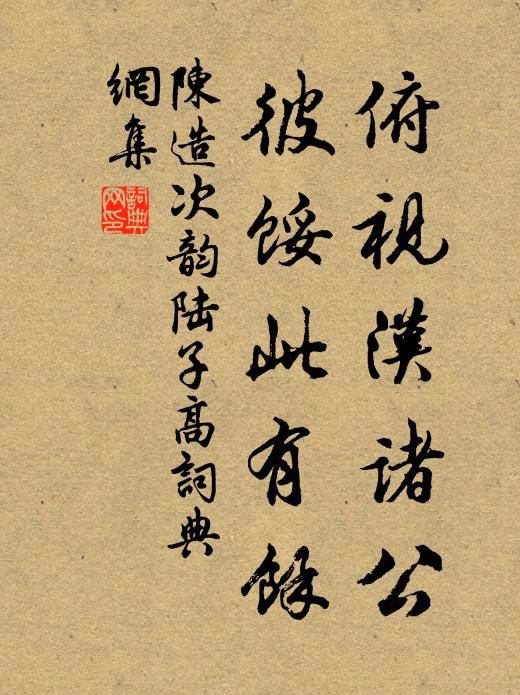 俯視漢諸公
彼餒此有餘
陳造次韵陆子高詞典
網集
詞典網印